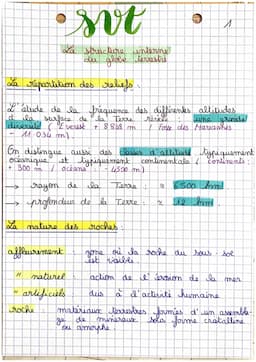 svt
1
La structure interne
du globe terrestre
La répartition des reliefs :
L'étude de la fréquence des différentes altitudes
à la surface de la Terre révèle : une grande
diversité ( Everest + 8848 m / fosse des Mariannes
- 11 034 m )
On distingue aussi des classes d'altitude typiquement
océanique et typiquement continentale ( continents :
+ 300 m / océans : - 4500 m )
→ rayon de la Terre : ≈ 6500 km
→ profondeur de la Terre : ≈ 12 km
La nature des roches :
affleurement : zone où la roche du sous-sol
est visible
" naturel : action de l'érosion de la mer
" artificiels : dus à l'activité humaine
roche : matériaux terrestres formés d'un assembla-
ge de minéraux sous forme cristalline
ou amorphe.